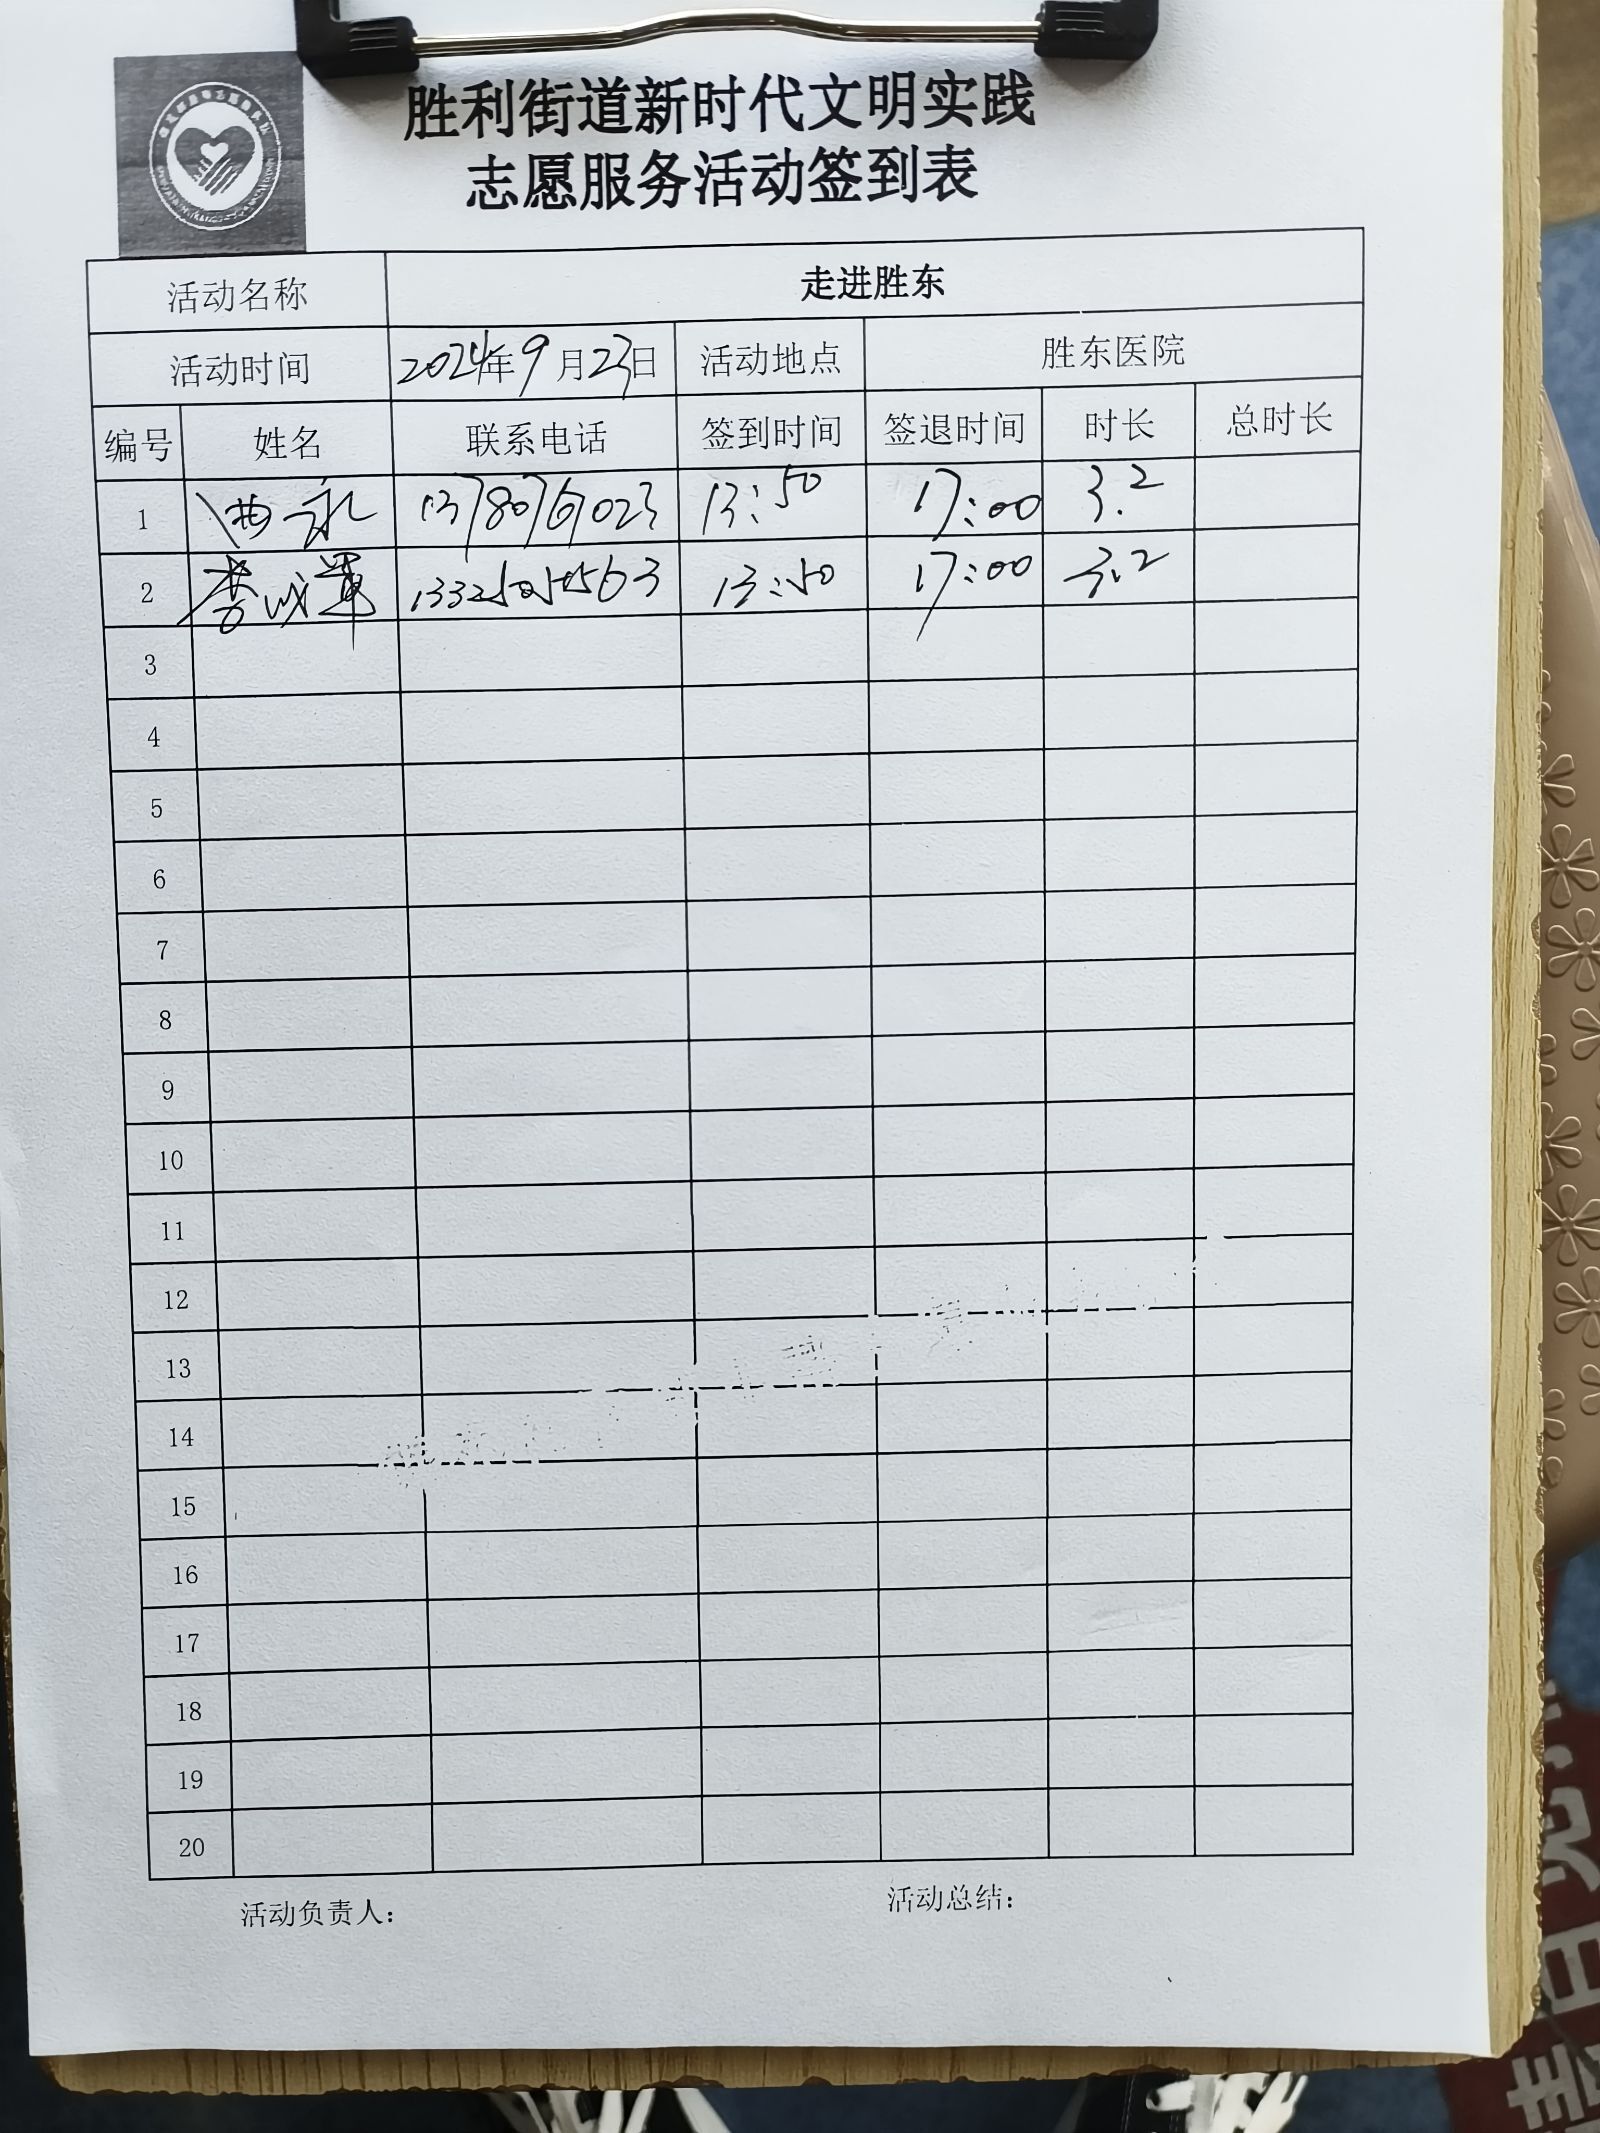 胜利街道新时代文明实践
志愿服务活动签到表
活动名称 走进胜东
活动时间 2024年9月23日 活动地点 胜东医院
编号 姓名 联系电话 签到时间 签退时间 时长 总时长
1 永 13780761023 13:50 17:00 3.2
2 李成军 13325050563 13:50 17:00 3.2
3
4
5
6
7
8
9
10
11
12
13
14
15
16
17
18
19
20
活动负责人： 活动总结：